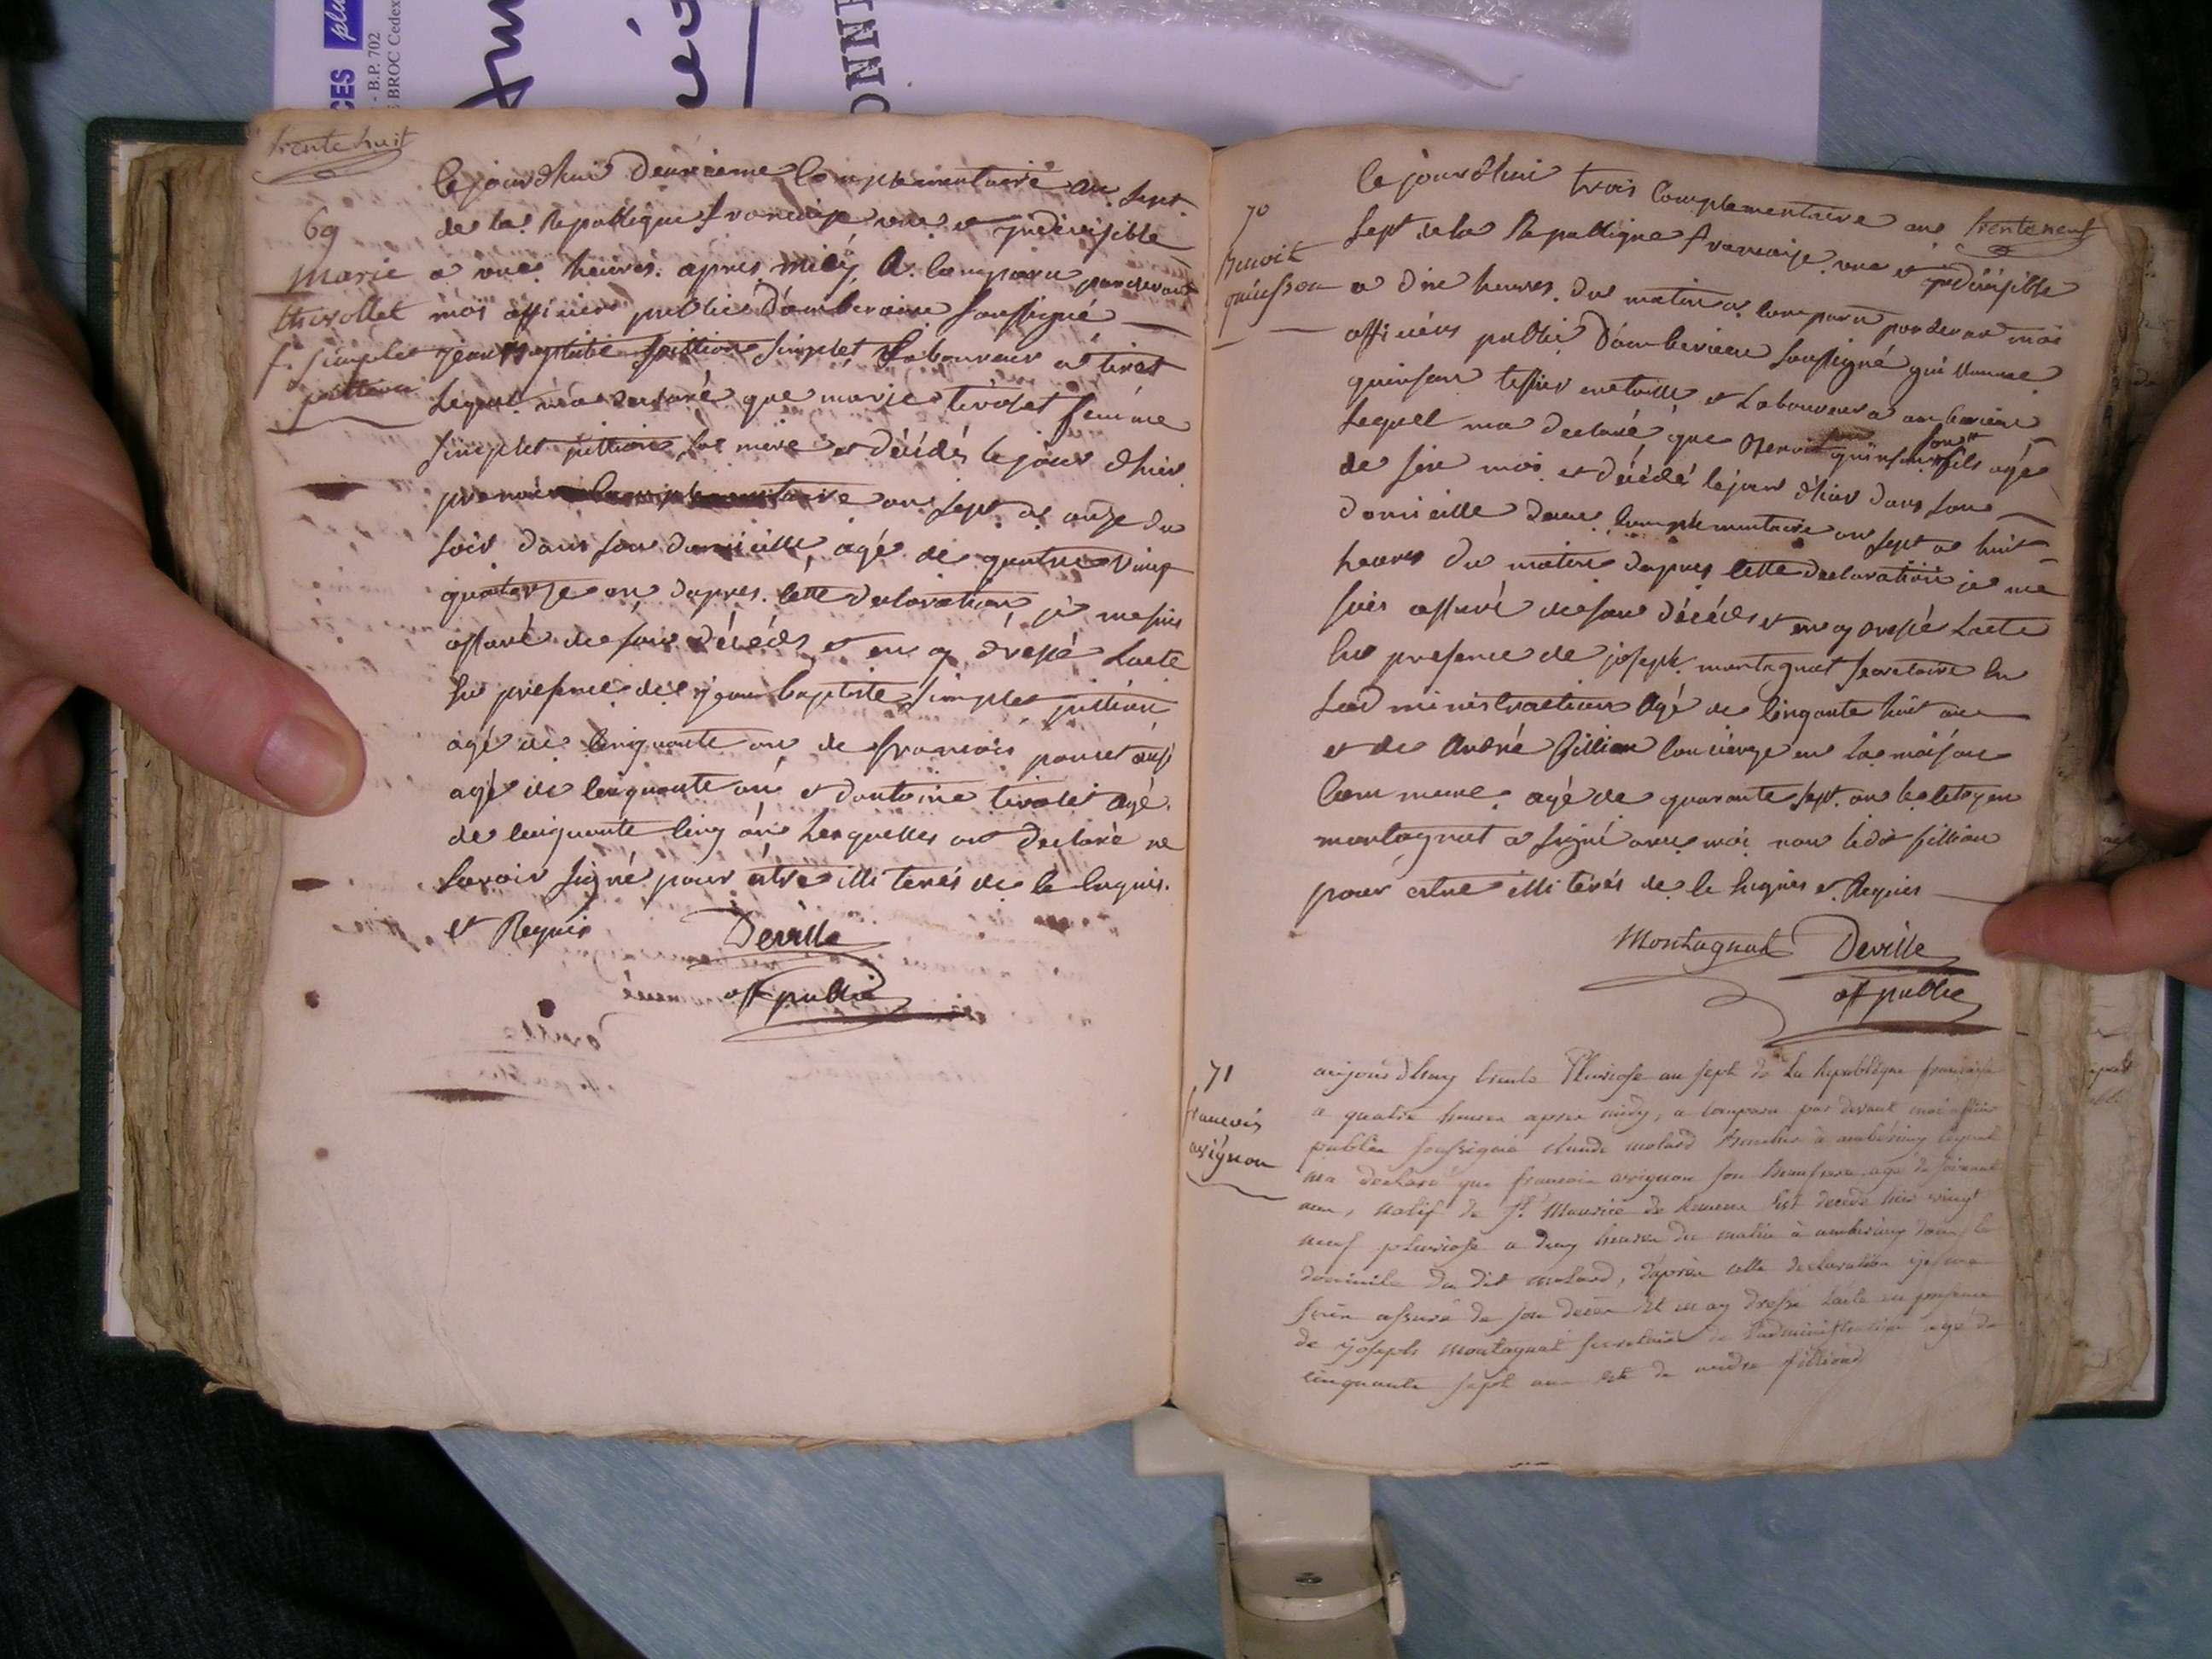 CES plu
- B.P. 702
BROC Cedex
ONN
trente huit
69
Marie
thivollet
f. simplet
pittion
Cejourdhui deuxieme Complementaire an sept
de la Republique francaise une et indivisible
a une heures apres midy, A comparu pardevant
moi officier public d'amberieu soussigné
jean baptiste pittion simplet Laboureur a tiret
Lequel m'a declaré que marie tivolet femme
simplet pittion sa mere et décédé le jour d'hier
premier Complementaire an sept a onze du
soir dans son domicille, agé de quatre vingt
quatorze an dapres cette declaration, je me suis
assuré de son décéds et en ay dressé Lacte
en presence de jean baptiste simplet pittion
agé de cinquante ans de francois poncet aussi
agé de cinquante an et d'antoine tivolet agé
de cinquante cinq ans Lesquelles ont declaré ne
savoir signé pour être illiterés de ce enquis
et Requis
Deville
off public
trente neuf
70
Benoit
quinson
Le jourdhui trois Complementaire an
sept de la Republique francaise une et indivisible
a dix heures du matin a comparu pardevan moi
officiers public d'amberieu soussigné guillaume
quinson tessier en toille et Laboureur a amberieu
Lequell ma declaré que Benoit quinson son fils agé
de six mois et décédé le jour d'hier dans son
domicille deux Complementaire an sept a huit
heures du matin dapres cette declaration je me
suis assuré de son décéds et en ay dressé Lacte
en presence de joseph montagnat secretaire en
Ladministration Agé de cinquante huit an
et de André fillion concierge en La maison
Commune agé de quarante sept an le citoyen
montagnat a signé avec moi non ledit fillion
pour estre illiterés de ce enquis et Requis
Montagnat Deville
off public
71
francois
avignon
aujourdhuy trente Pluviose an sept de La Republique francaise
a quatre heures apres midy, a comparu par devant moi officier
public soussigné claude molard Boucher à amberieu lequel
ma declaré que francois avignon son Beaufrere agé de soixante
ans, natif de St Maurice de Remens est decedé hier vingt
neuf pluviose a cinq heures du matin à amberieu dans le
domicile du dit molard, dapres cette declaration je me
suis assuré de son deces et en ay dressé l'acte en presence
de joseph montagnat secretaire de l'administration agé de
cinquante sept ans et de andre fillion